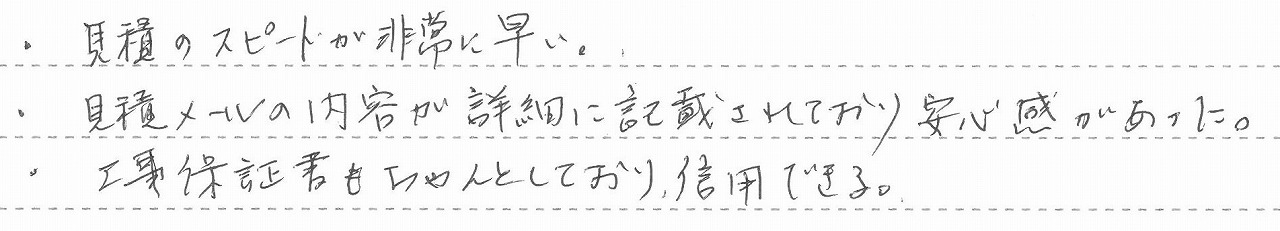 ・ 見積のスピードが非常に早い。
・ 見積メールの内容が詳細に記載されており安心感があった。
・ 工事保証書もちゃんとしており、信用できる。